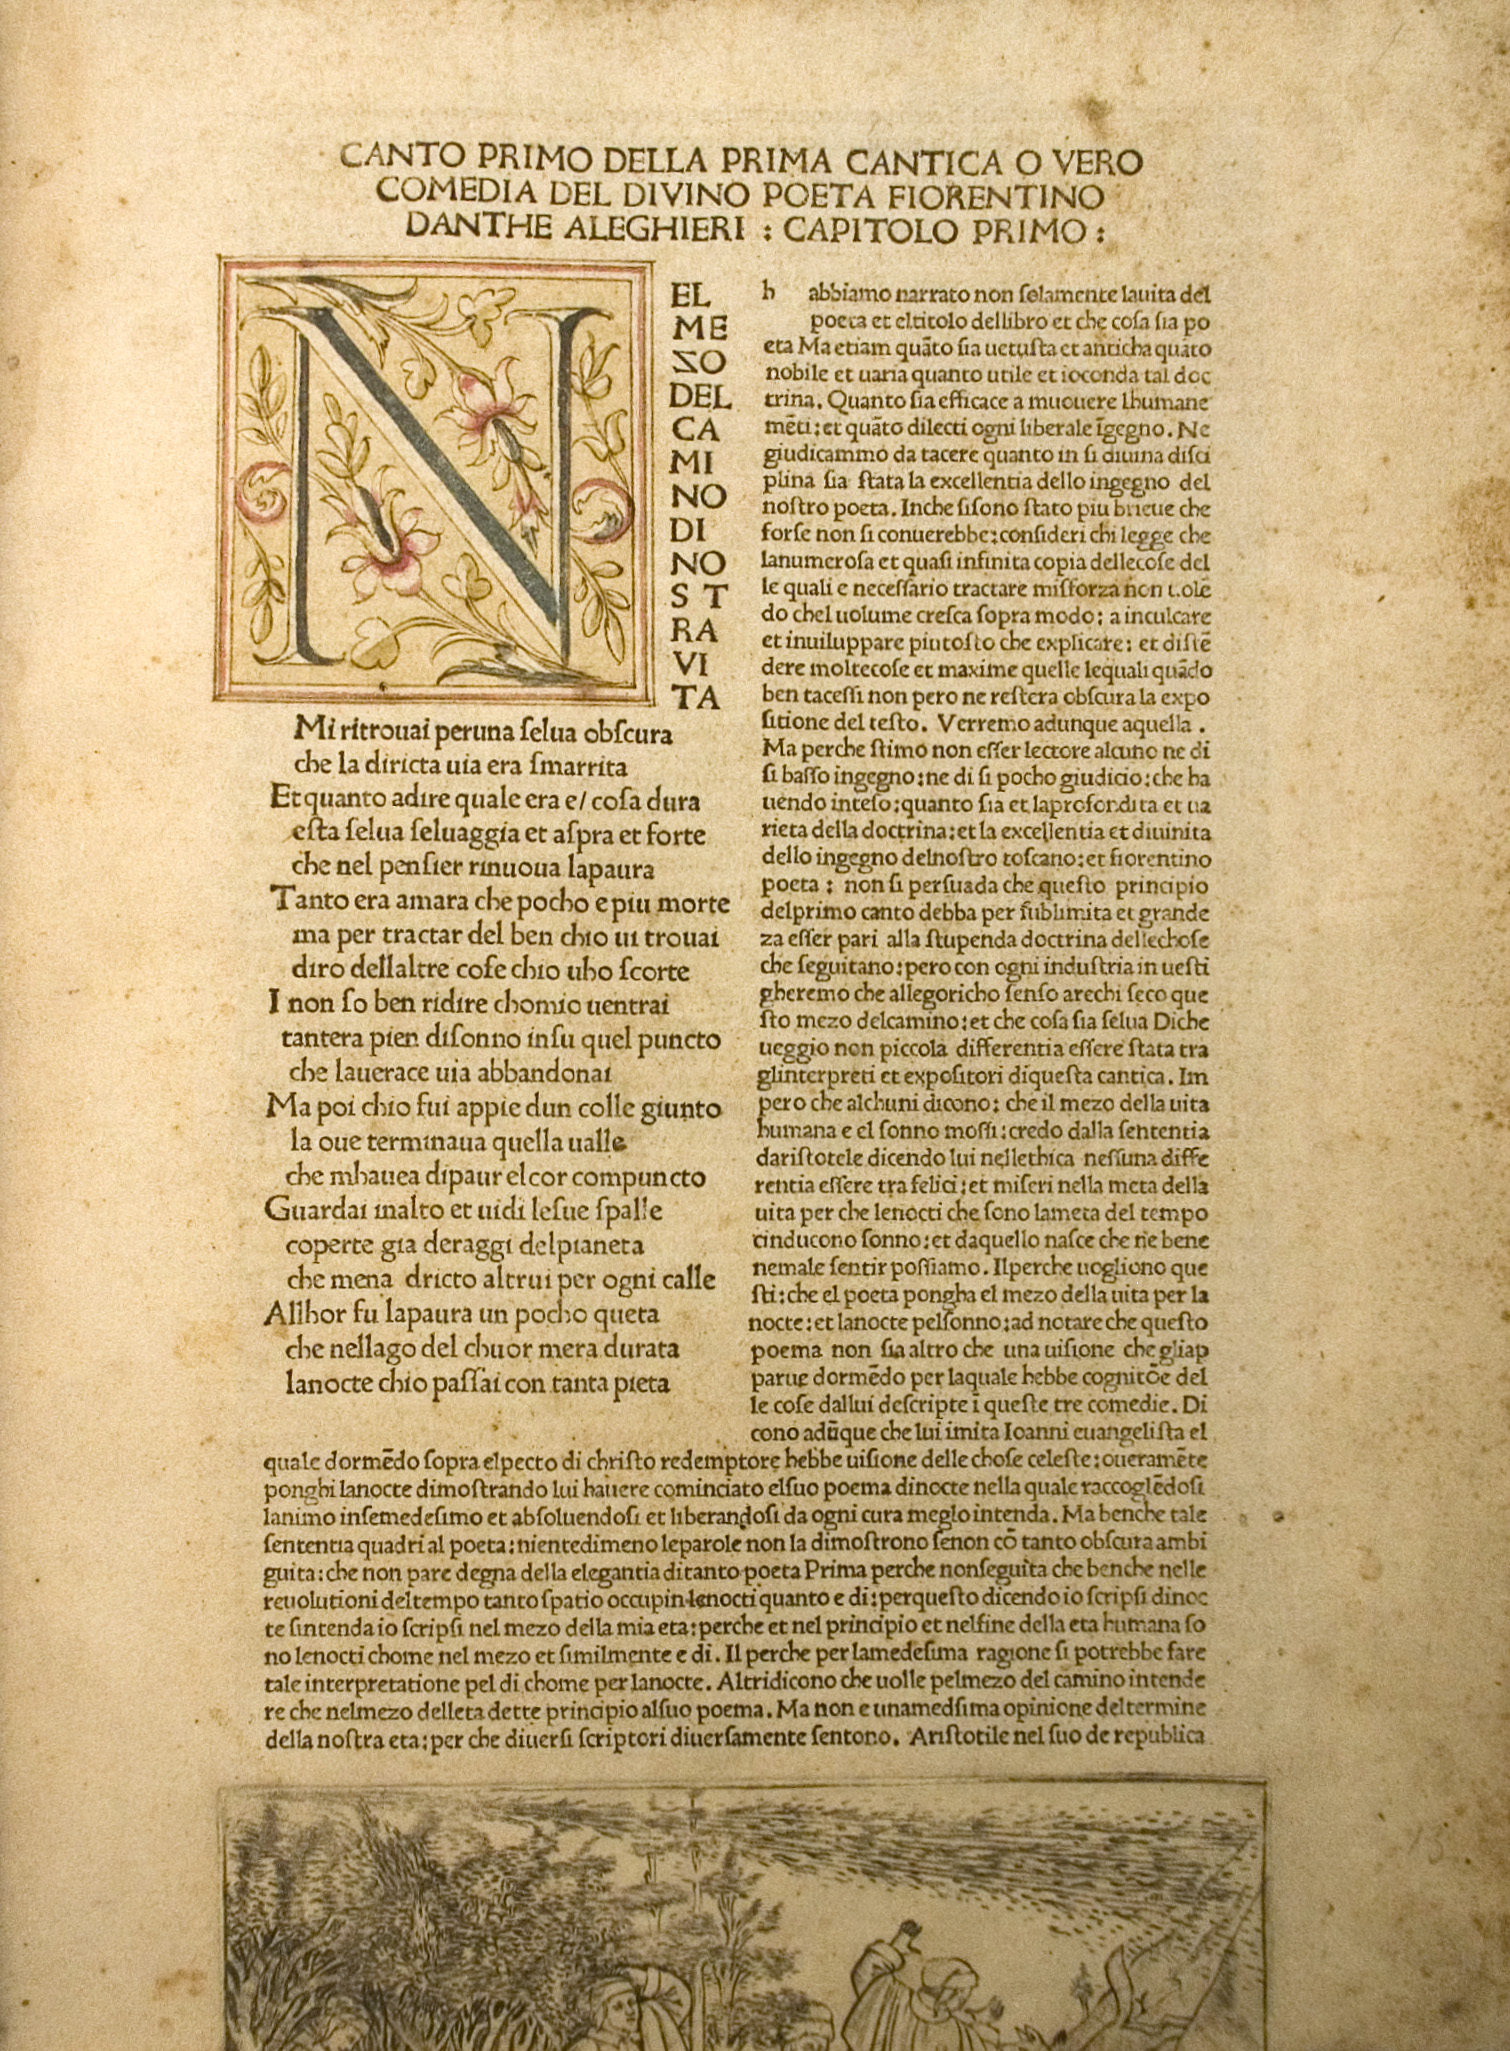 CANTO PRIMO DELLA PRIMA CANTICA O VERO
COMEDIA DEL DIVINO POETA FIORENTINO
DANTHE ALEGHIERI : CAPITOLO PRIMO :
N
EL
ME
ZO
DEL
CA
MI
NO
DI
NO
S T
RA
VI
TA
Mi ritrouai peruna ſelua obſcura
che la diricta uia era ſmarrita
Et quanto adire quale era e/ coſa dura
eſta ſelua ſeluaggia et aſpra et forte
che nel penſier rinuoua lapaura
Tanto era amara che pocho e piu morte
ma per tractar del ben chio ui trouai
diro dellaltre coſe chio uho ſcorte
I non ſo ben ridire chomio uentrai
tantera pien diſonno inſu quel puncto
che lauerace uia abbandonai
Ma poi chio fui appie dun colle giunto
la oue terminaua quella ualle
che mhauea dipaur el cor compuncto
Guardai inalto et uidi leſue ſpalle
coperte gia deraggi delpianeta
che mena dricto altrui per ogni calle
Allhor fu lapaura un pocho queta
che nellago del chuor mera durata
lanocte chio paſſai con tanta pieta
h abbiamo narrato non ſolamente lauita del
poeta et eltitolo dellibro et che coſa ſia po
eta Ma etiam quāto ſia uetuſta et anticha quāto
nobile et uaria quanto utile et ioconda tal doc
trina. Quanto ſia efficace a muouere lhumane
mēti:et quāto dilecti ogni liberale īgegno. Ne
giudicammo da tacere quanto in ſi diuina diſci
plina ſia ſtata la excellentia dello ingegno del
noſtro poeta. Inche ſiſono ſtato piu brieue che
forſe non ſi conuerebbe:conſideri chi legge che
lanumeroſa et quaſi infinita copia dellecoſe del
le quali e neceſſario tractare miſforza non uolē
do chel uolume creſca ſopra modo: a inculcare
et inuiluppare piutoſto che explicare: et diſtē
dere moltecoſe et maxime quelle lequali quādo
ben taceſſi non pero ne reſtera obſcura la expo
ſitione del teſto. Verremo adunque aquella .
Ma perche ſtimo non eſſer lectore alcuno ne di
ſi baſſo ingegno:ne di ſi pocho giudicio:che ha
uendo inteſo:quanto ſia et laprofondita et ua
rieta della doctrina:et la excellentia et diuinita
dello ingegno delnoſtro toſcano:et fiorentino
poeta : non ſi perſuada che queſto principio
delprimo canto debba per ſublimita et grande
za eſſer pari alla ſtupenda doctrina dellechoſe
che ſeguitano:pero con ogni induſtria in ueſti
gheremo che allegoricho ſenſo arechi ſeco que
ſto mezo delcamino:et che coſa ſia ſelua Diche
ueggio non piccola differentia eſſere ſtata tra
glinterpreti et expoſitori diqueſta cantica. Im
pero che alchuni dicono: che il mezo della uita
humana e el ſonno moſſi:credo dalla ſententia
dariſtotele dicendo lui nellethica neſſuna diffe
rentia eſſere tra felici:et miſeri nella meta della
uita per che lenocti che ſono lameta del tempo
cinducono ſonno:et daquello naſce che ne bene
nemale ſentir poſſiamo. Ilperche uogliono que
ſti:che el poeta pongha el mezo della uita per la
nocte:et lanocte pelſonno:ad notare che queſto
poema non ſia altro che una uiſione che gliap
parue dormēdo per laquale hebbe cognitōe del
le coſe dallui deſcripte ī queſte tre comedie. Di
cono adūque che lui imita Ioanni euangeliſta el
quale dormēdo ſopra elpecto di chriſto redemptore hebbe uiſione delle choſe celeſte:oueramēte
ponghi lanocte dimoſtrando lui hauere cominciato elſuo poema dinocte nella quale raccoglēdoſi
lanimo inſemedeſimo et abſoluendoſi et liberandoſi da ogni cura meglo intenda. Ma benche tale
ſententia quadri al poeta:nientedimeno leparole non la dimoſtrono ſenon cō tanto obſcura ambi
guita:che non pare degna della elegantia ditanto poeta Prima perche nonſeguita che benche nelle
reuolutioni deltempo tanto ſpatio occupin lenocti quanto e di:perqueſto dicendo io ſcripſi dinoc
te ſintenda io ſcripſi nel mezo della mia eta:perche et nel principio et nelfine della eta humana ſo
no lenocti chome nel mezo et ſimilmente e di. Il perche per lamedeſima ragione ſi potrebbe fare
tale interpretatione pel di chome per lanocte. Altridicono che uolle pelmezo del camino intende
re che nelmezo delleta dette principio alſuo poema. Ma non e unamedſima opinione deltermine
della noſtra eta:per che diuerſi ſcriptori diuerſamente ſentono. Ariſtotile nel ſuo de republica